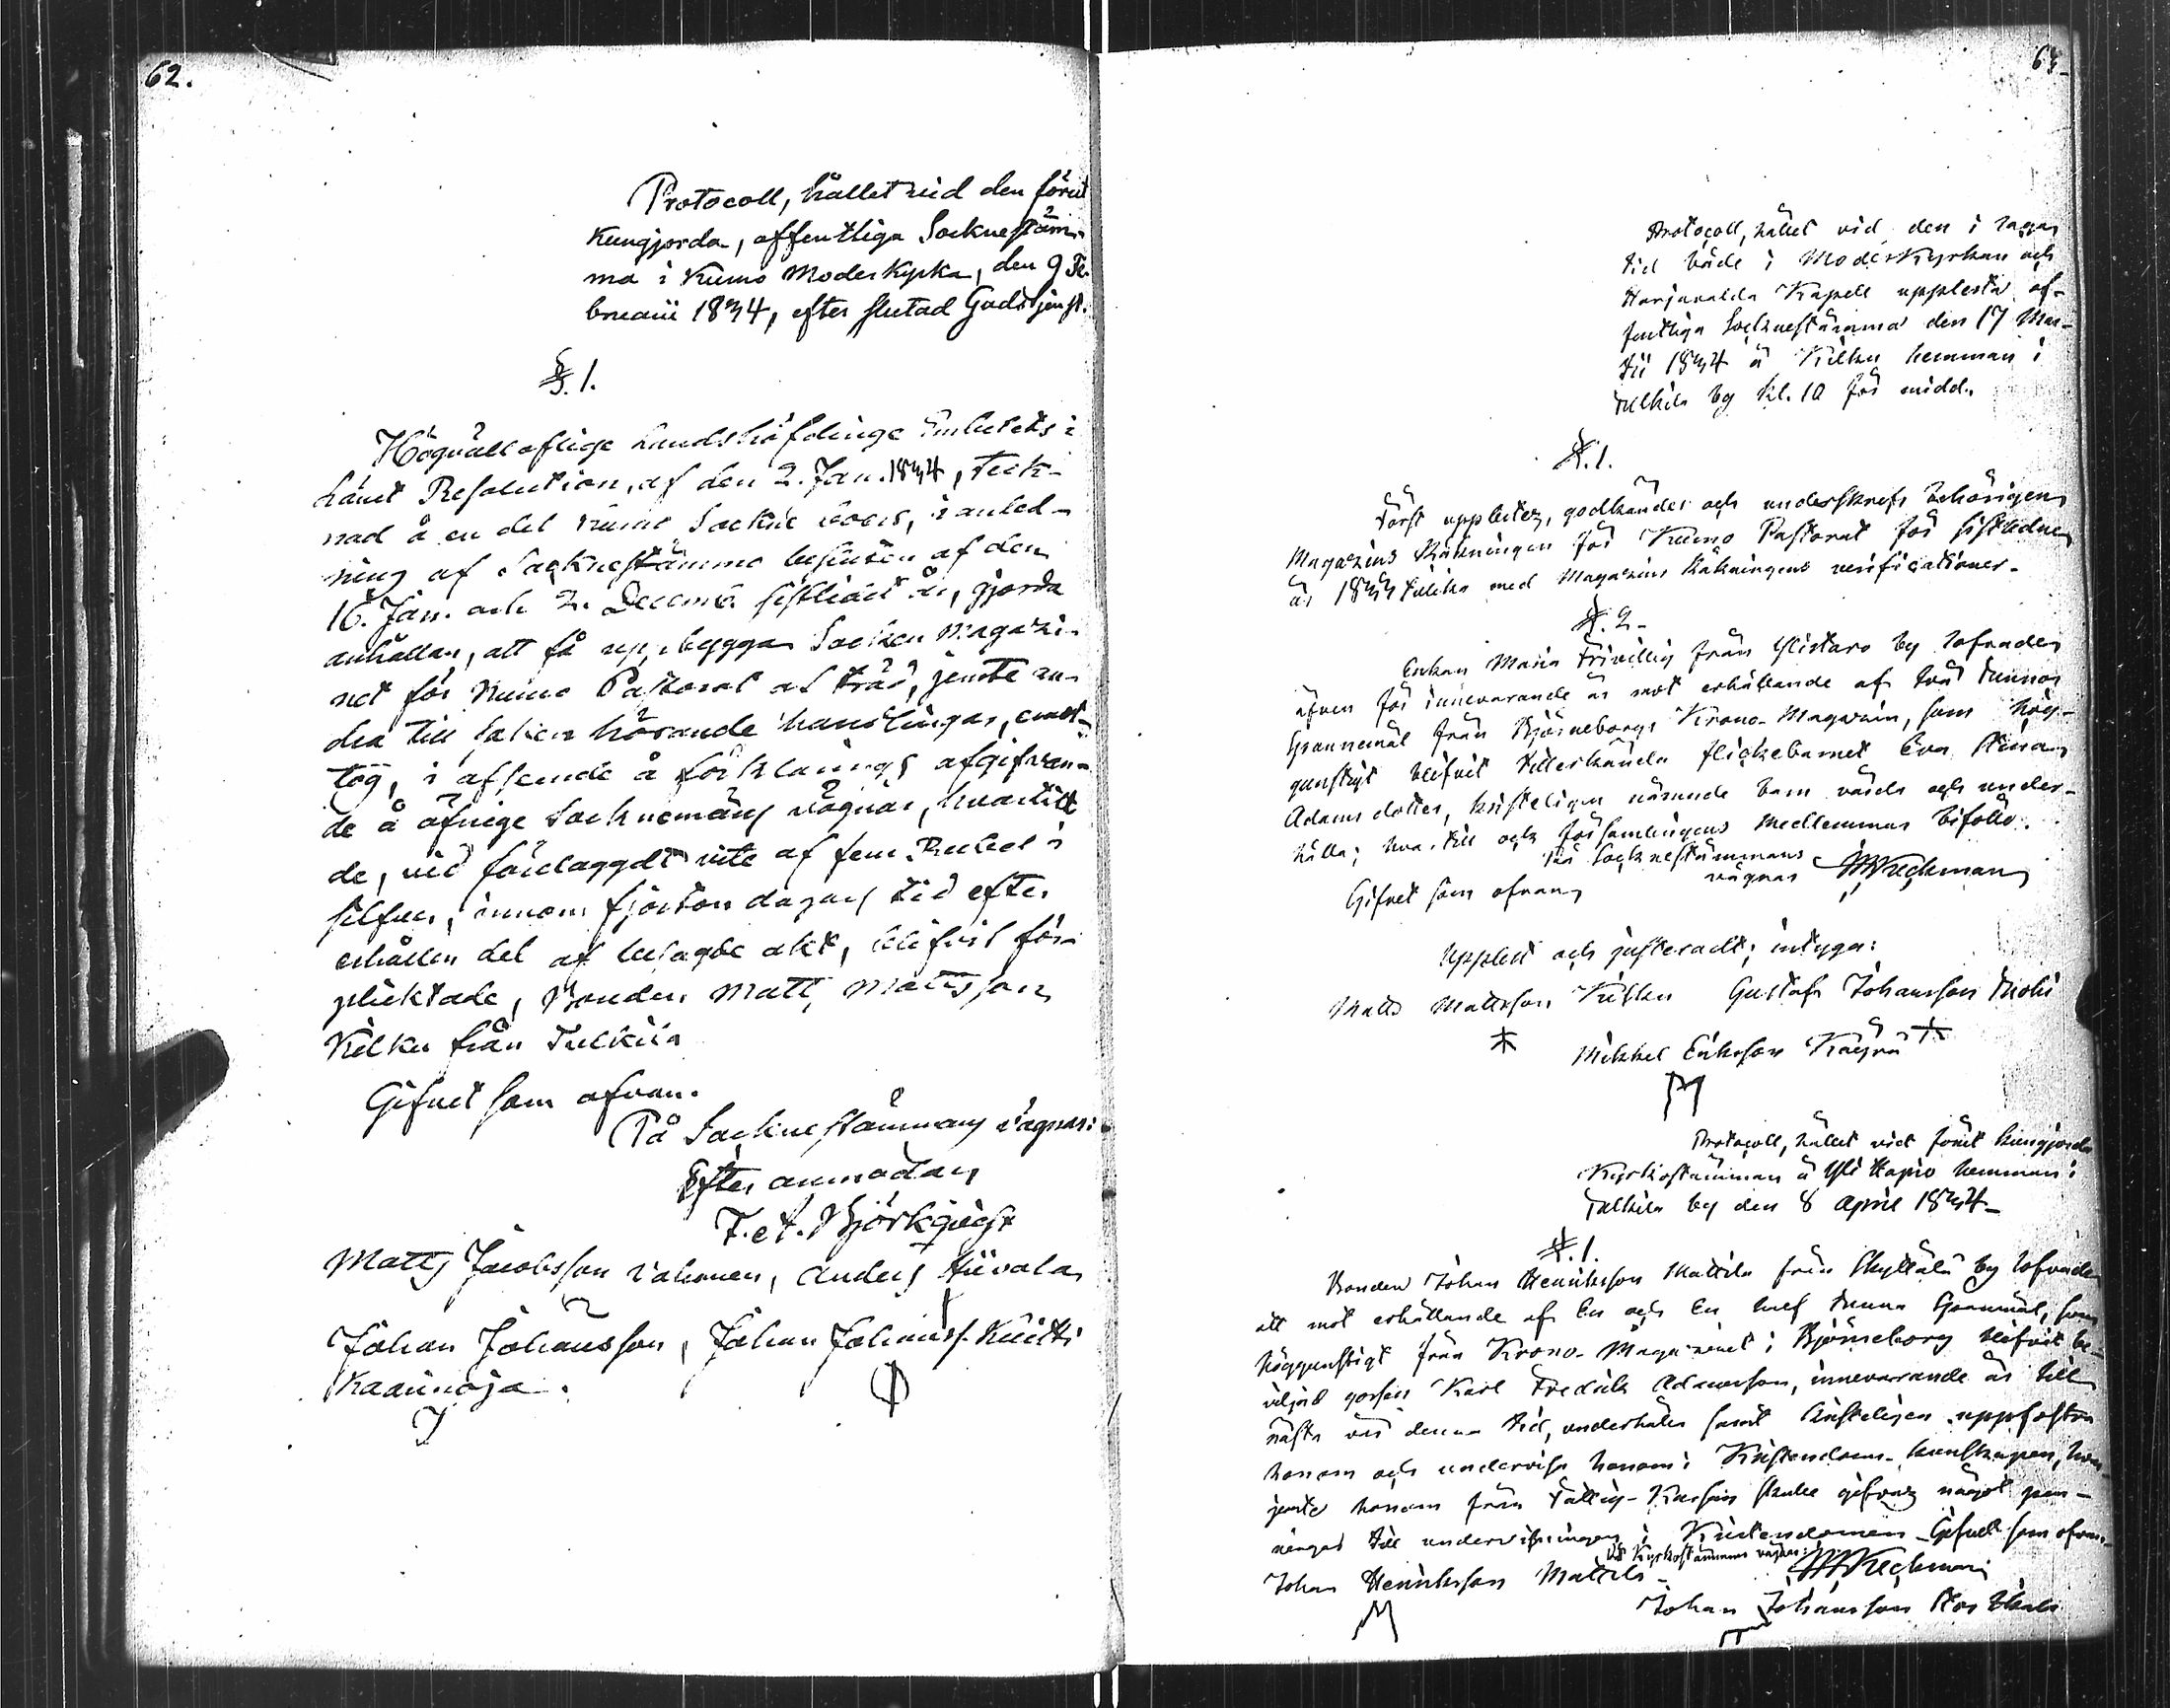 62.
Protocoll, hållet vid den förut
kungjorda, offentliga Sockneståm-
ma i Kumo Moderkyrka, den 9 Fe-
bruarii 1834, efter slutad Gudstjenst.
§. 1.
Högvälloflige Landshöfdinge Embetets i
Länet Resolution, af den 2. Jan. 1834, teck-
nad å en del Kumo Sockne boers, i anled-
ning af Socknestämmo besluten af den
16. Jan. och 2. Decemb. sistledit år, gjorda
anhållan, att få uppbygga Socken Magazi-
net för Kumo Pastorat af träd, jemte an-
dra till saken hörande handlingar, emot-
tog, i afseende å förklarings afgifvan-
de å öfrige Socknemäns vägnar, hvartill
de, vid förelaggdt vite af fem Rubel i
silfver, innom fjorton dagars tid efter
erhållen del af besagde akt, blifvit för-
pliktade, Bonden Matts Mattsson
Kilku från Tulkila
Gifvet som ofvan.
På Socknestämmans vägnar:
Efter anmodan
F. et. Björkqvist
Matts Jacobsson Valonen, Anders Hiivola
Johan Johansson, Johan Johanss. Knitti
Kaarinoja.
63.
Protocoll, hållet vid den i laga
tid både i Moderkyrkan och
Harjavalda Kapell upplesta of-
fentliga Socknestämma den 17 Mar-
tii 1834 å Kilku hemman i
Tulkila by kl. 10 för midd.
§. 1.
Först upplästes, godkändes och underskrefs behörigen
Magazins Räkningen för Kumo Pastorat för sistledne
år 1833 tillika med Magazins Räkningens verificationer.
§. 2.
Enkan Maria Frivillig från Ylistaro by lofvade
äfven för innevarande år mot erhållande af två tunnor
Spannemål från Björneborgs Krono-Magazin, som hög-
gunstigt blifvit tillerkända flickebarnet Eva Stina
Adamsdotter, kristeligen nämnde barn vårda och under-
hålla; hvartill och Församlingens medlemmar biföllo.
Gifvet som ofvan
På Socknestämmans
vägnar
Uppläst och justeradt; intyga:
Matts Mattsson Kilku Gustaf Johansson
Mikkel Eriksson
Protocoll, hållet vid förut kungjorda
Kyrkostämman å Yli Hapio hemman i
Tulkila by den 8 April 1834
§. 1.
Bonden Johan Henriksson Mattila från Skyttälä by lofvade
att mot erhållande af En och En half tunna Spannmål, som
höggunstigt från Krono-Magazinet i Björneborg blifvit be-
viljad gossen Karl Fredrik Adamsson, innevarande år till
nästa vid denna tid, underhålla samt kristeligen uppfostra
honom och undervisa honom i Kristendoms-kunskapen,
jemte honom från Fattig-Kassan skulle gifvas något pen-
ningar till undervisningen i Kristendomen. Gifvet som ofvan.
På Kyrkostämmans vägnar:
Johan Henriksson Mattila
Johan Johansson